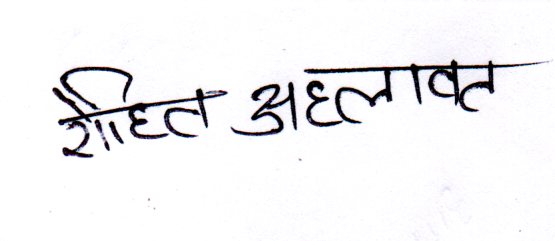 रोहित अहलावत